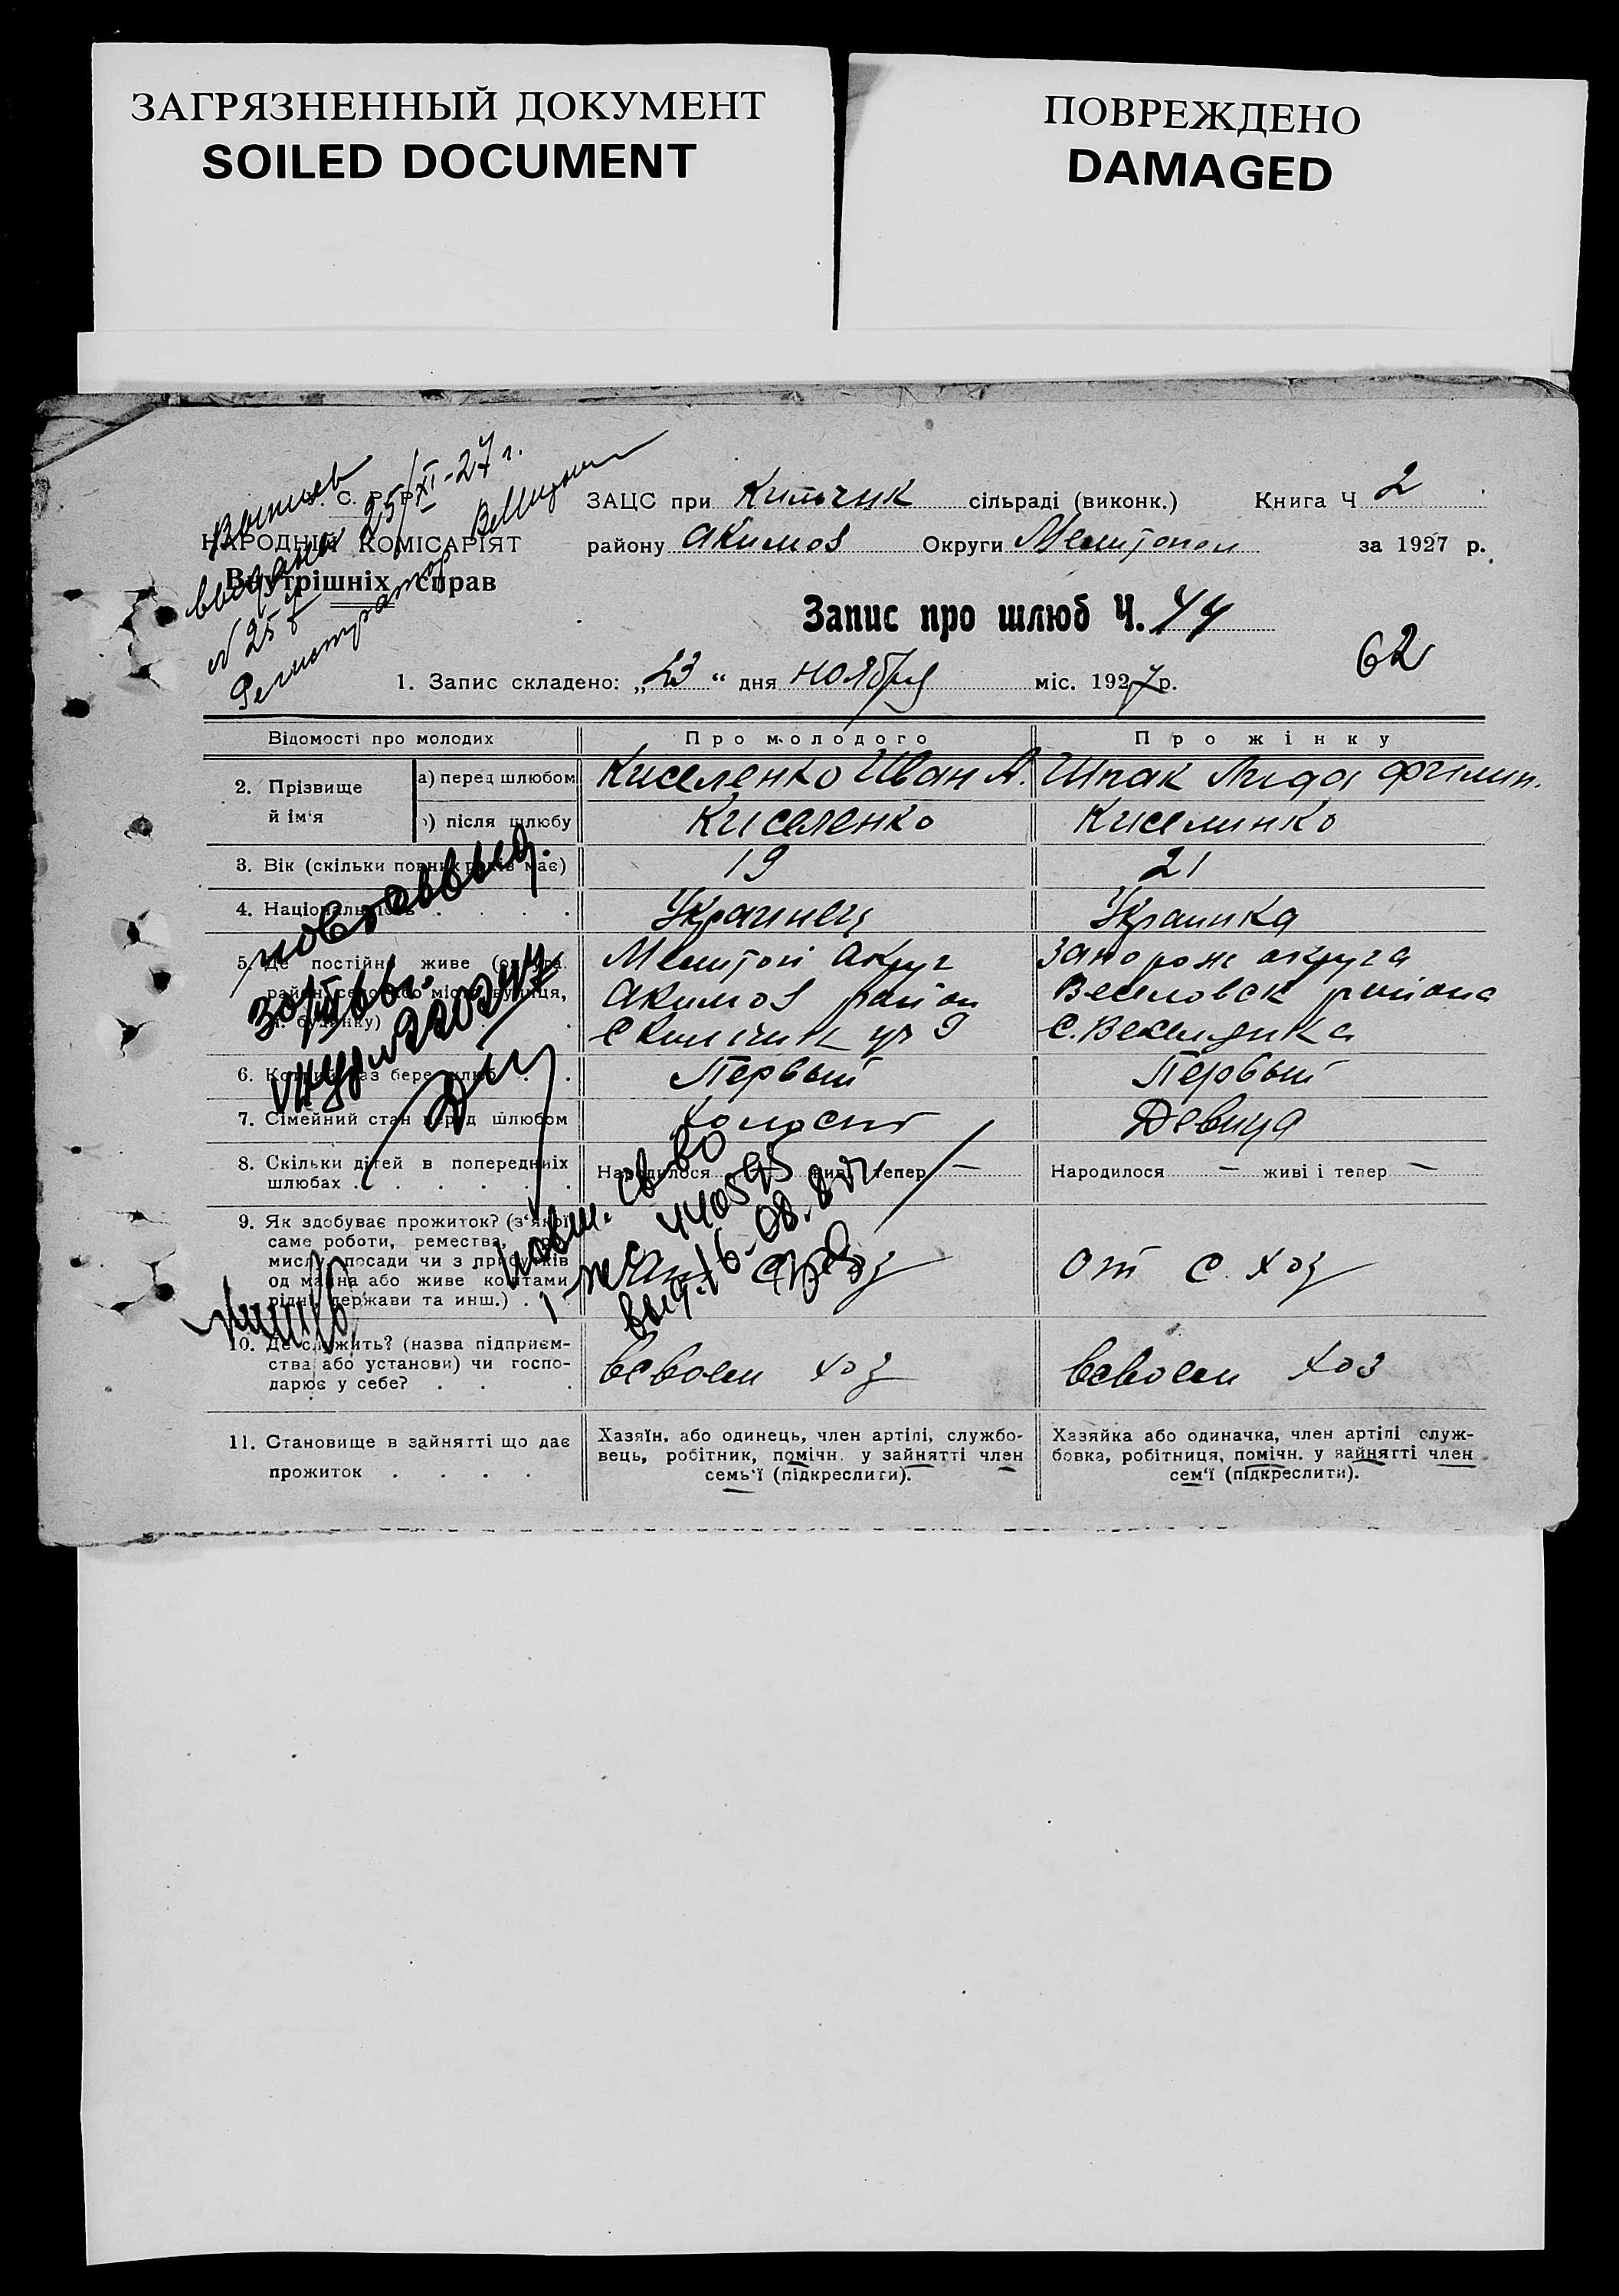 ЗАГРЯЗНЕННЫЙ ДОКУМЕНТ
SOILED DOCUMENT
ПОВРЕЖДЕНО
DAMAGED
25/XI-27 г.
С. Р. Р.
НАРОДНІЙ КОМІСАРІЯТ
Внутрішніх справ
Регистратор
ЗАЦС при Кильчик сільраді (виконк.) Книга Ч 2
району Акимов Округи Мелитопол за 1927 р.
Запис про шлюб Ч. 44
62
1. Запис складено: „23“ дня ноября міс. 1927 р.
Відомості про молодих Про молодого Про жінку
2. Прізвище й ім'я
а) перед шлюбом Киселенко Иван А. Шпак Лида Филип.
б) після шлюбу Киселенко Киселинко
3. Вік (скільки повних років має) 19 21
4. Національність Украинец Украинка
5. Де постійно живе (округа, Мелитоп Округ Запорож округа
район, село або місто, вулиця, Акимов район Веселовск района
ч. будинку) с Кильчик ул 9
6. Котрий раз бере шлюб Первый Первый
7. Сімейний стан перед шлюбом Холост Девица
8. Скільки дітей в попередніх шлюбах Народилося живі і тепер — Народилося — живі і тепер —
9. Як здобуває прожиток? (з'якої
саме роботи, ремества, про-
мислу, посади чи з прибутків
од майна або живе коштами
рідні, держави та инш.) От с хоз От с. хоз
повт. св-во
440595
выд. 16-08.
10. Де служить? (назва підприєм-
ства або установи) чи госпо-
дарює у себе? в своем хоз в своем хоз
11. Становище в зайнятті що дає
прожиток
Хазяїн, або одинець, член артілі, службо-
вець, робітник, помічн. у зайнятті член
семь'ї (підкреслити).
Хазяйка або одиначка, член артілі служ-
бовка, робітниця, помічн. у зайнятті член
сем'ї (підкреслити).